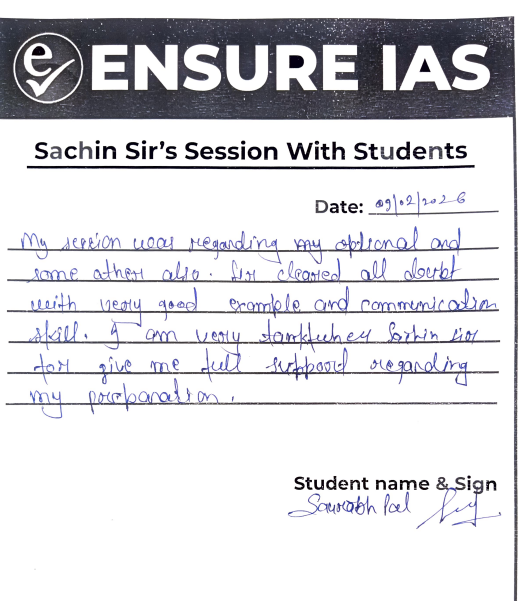 e ENSURE IAS
Sachin Sir's Session With Students
Date: 09/02/2026
My session was regarding my optional and
some other also. Sir cleared all doubt
with very good example and communication
skill. I am very Sachin sir
for give me full suppood regarding
my
Student name & Sign
Saurabh Pal